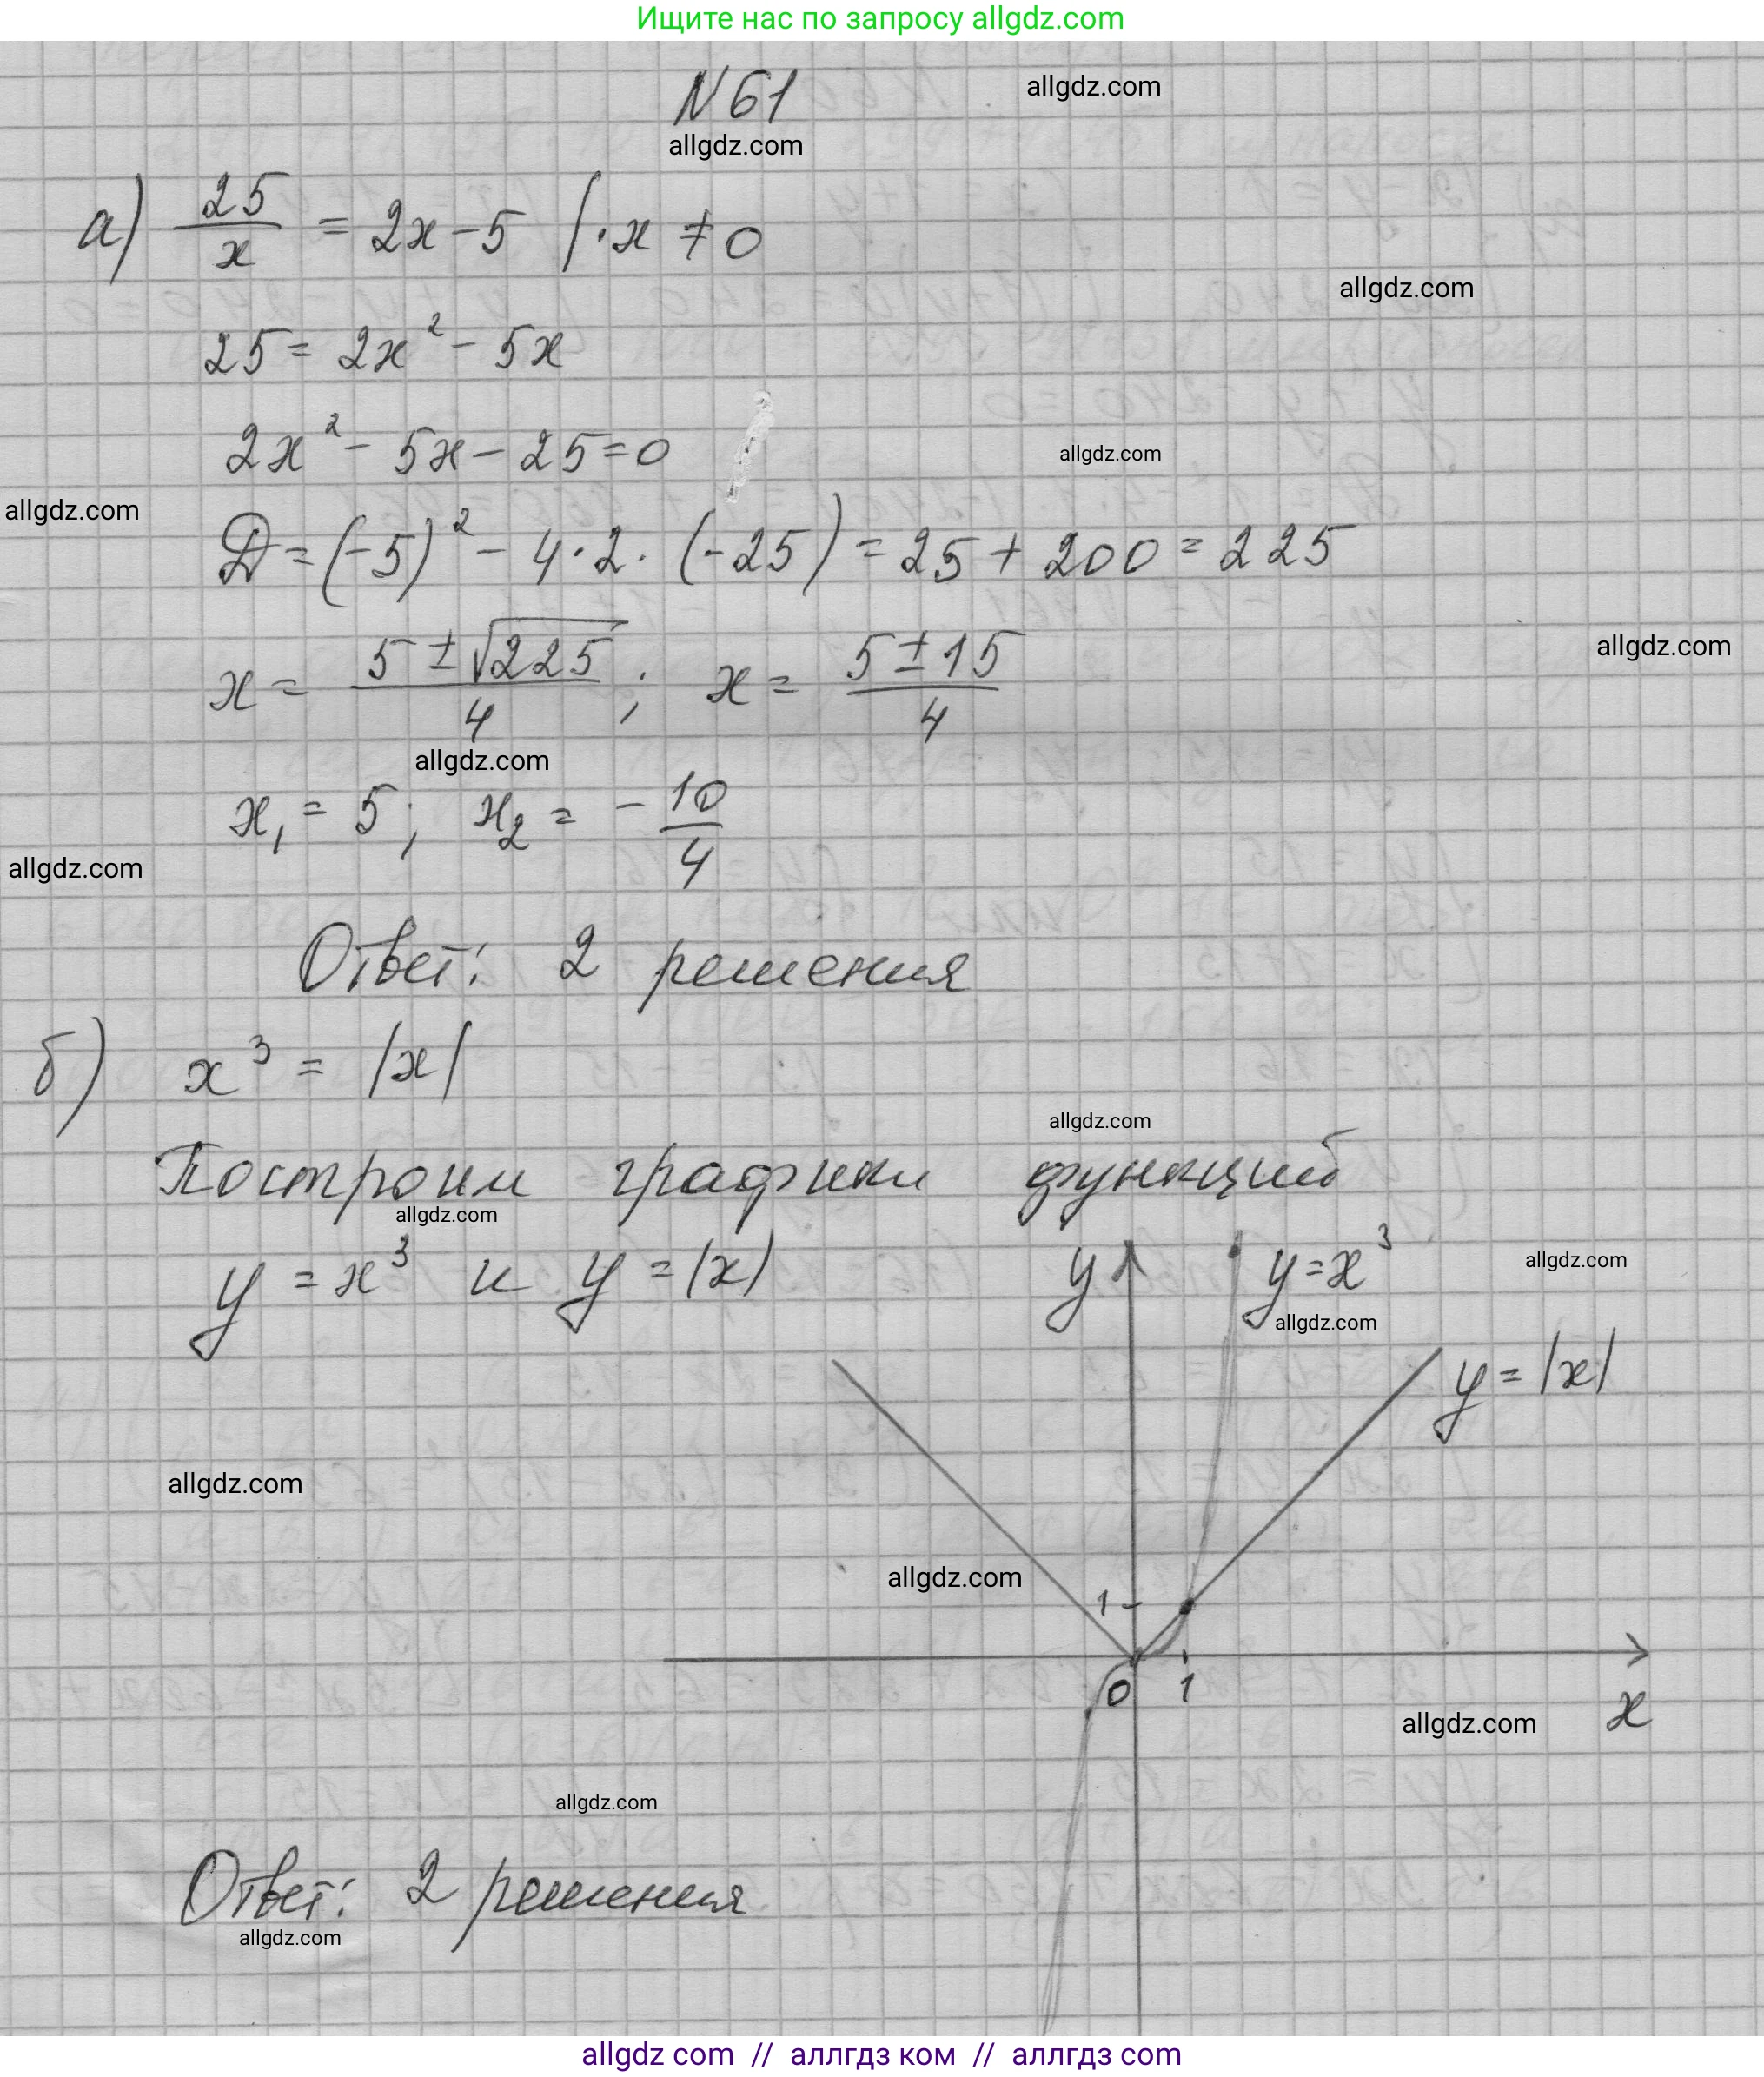 Ищите нас по запросу allgdz.com
N 61
allgdz.com
allgdz.com
а) 25/x = 2x - 5 | · x ≠ 0
allgdz.com
25 = 2x² - 5x
2x² - 5x - 25 = 0
allgdz.com
allgdz.com
D = (-5)² - 4 · 2 · (-25) = 25 + 200 = 225
allgdz.com
x = (5 ± √225)/4 ; x = (5 ± 15)/4
allgdz.com
x₁ = 5; x₂ = - 10/4
allgdz.com
Ответ: 2 решения
б) x³ = |x|
allgdz.com
Построим графики функций
allgdz.com
y = x³ и y = |x|
y
y = x³
allgdz.com
allgdz.com
y = |x|
allgdz.com
allgdz.com
1
0
1
x
allgdz.com
allgdz.com
Ответ: 2 решения
allgdz.com
allgdz com // аллгдз ком // аллгдз com